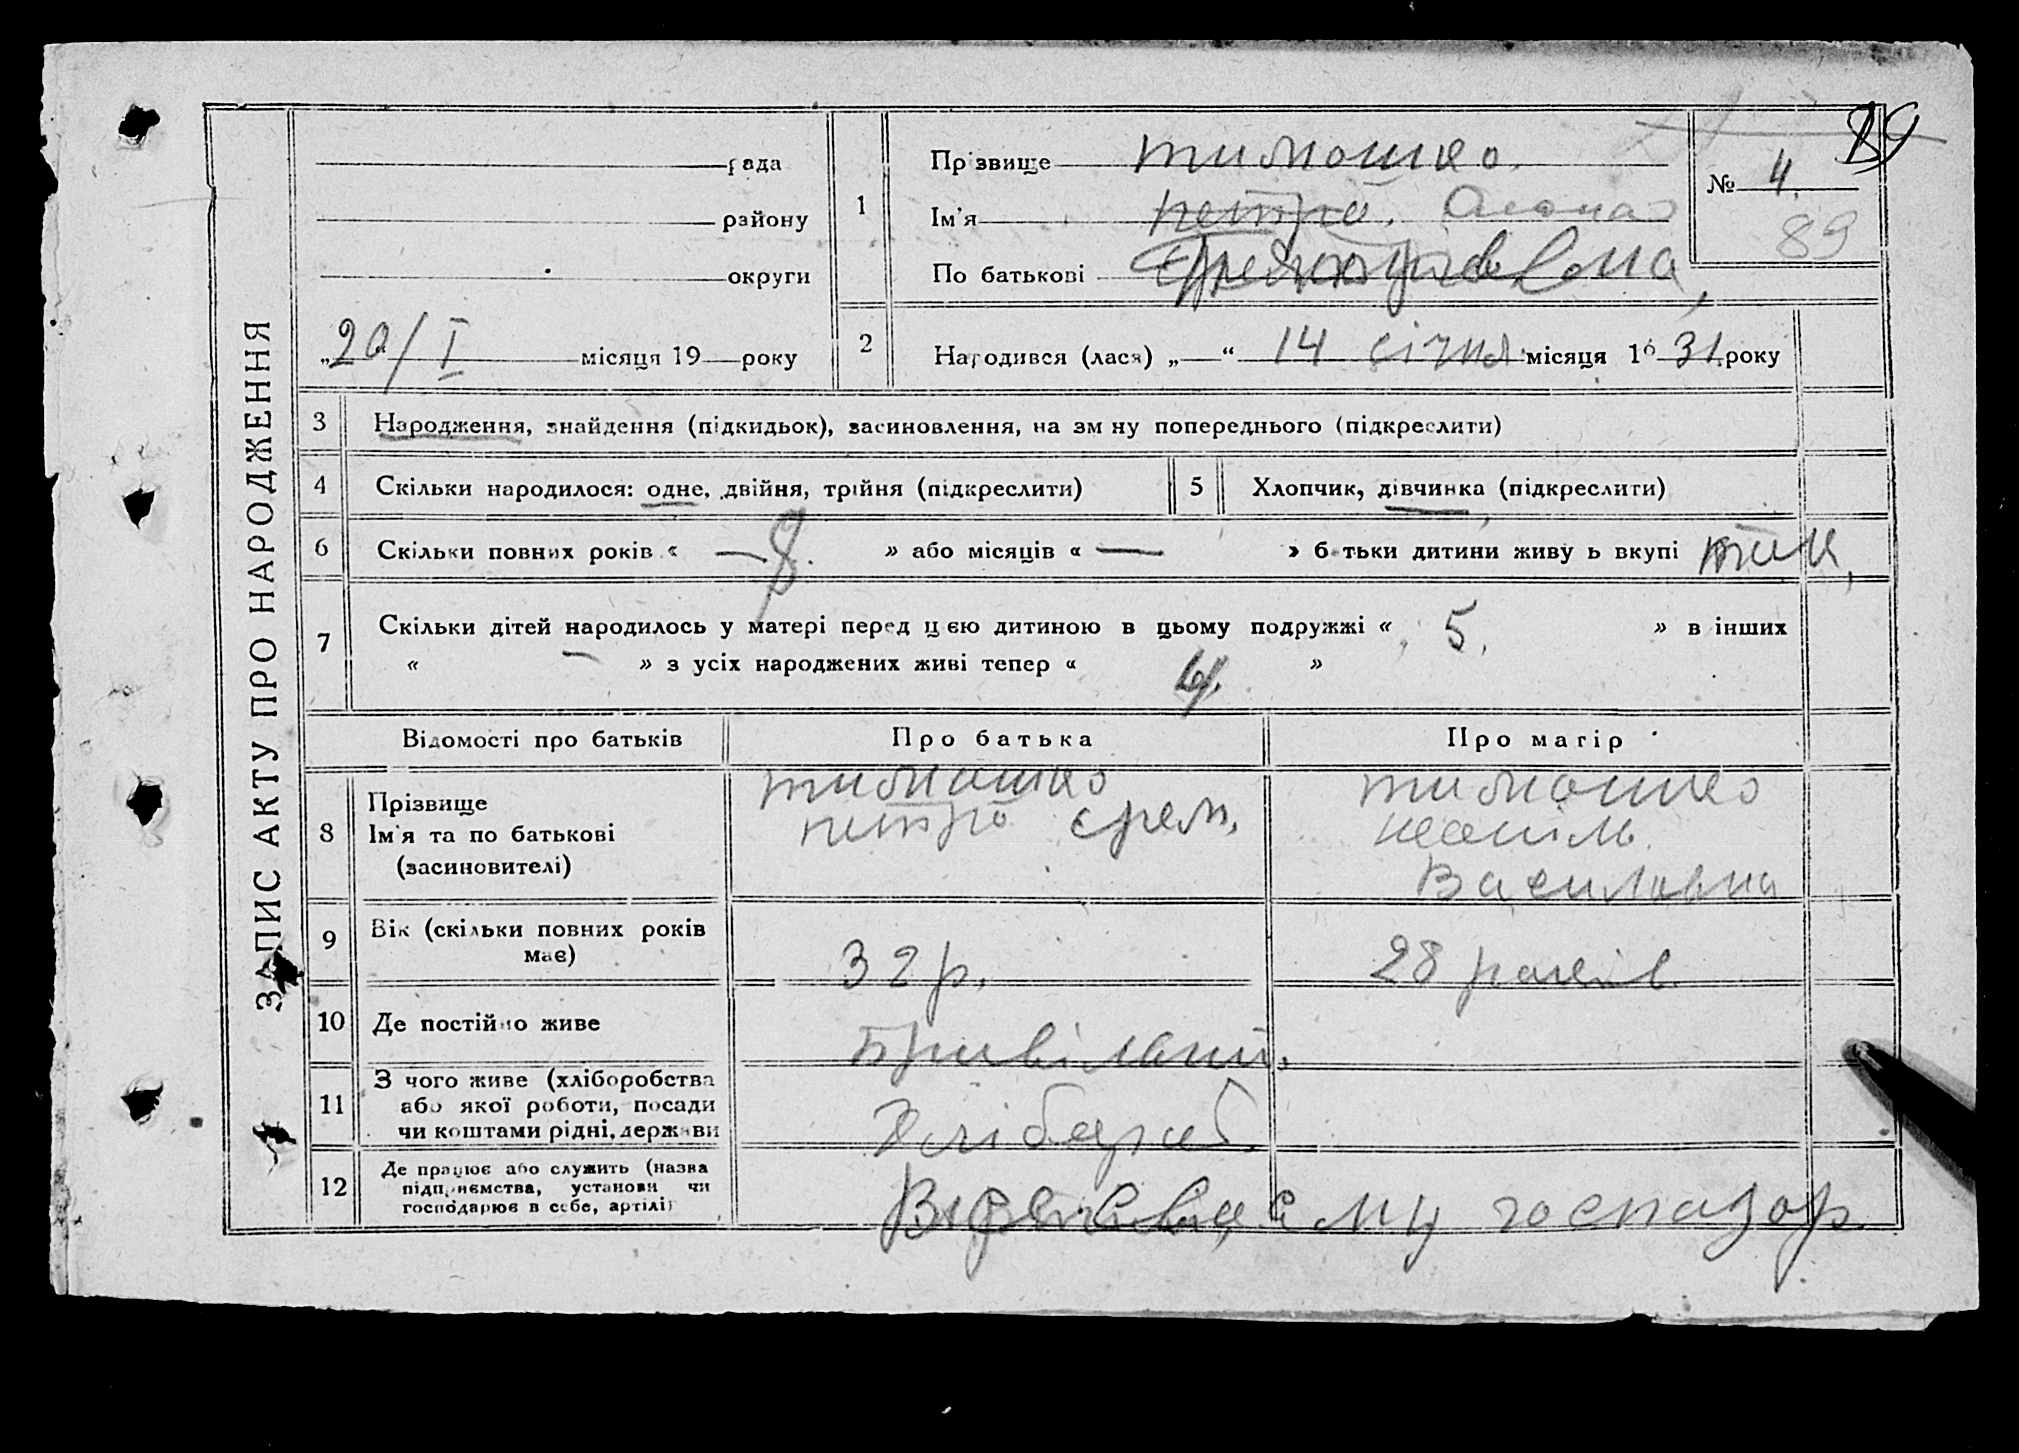 ЗАПИС АКТУ ПРО НАРОДЖЕННЯ
рада
району
округи
„20/I місяця 19 року
1
Прізвище тимошко.
Ім'я петро.
По батькові
№ 4.
89
89
2
Народився (лася) „ “ 14 січня місяця 19 31 року
3 Народження, знайдення (підкидьок), засиновлення, на зміну попереднього (підкреслити)
4 Скільки народилося: одне, двійня, трійня (підкреслити)
5 Хлопчик, дівчинка (підкреслити)
6 Скільки повних років « — 8. » або місяців « — » батьки дитини живуть вкупі
7 Скільки дітей народилось у матері перед цією дитиною в цьому подружжі « 5. » в інших
« — » з усіх народжених живі тепер « 4. »
Відомості про батьків
Про батька
Про матір
8 Прізвище
Ім'я та по батькові
(засиновителі)
тимошко
петро єрем.
тимошко
Василовна
9 Вік (скільки повних років
має)
32 р.
28 років.
10 Де постійно живе
11 З чого живе (хліборобства
або якої роботи, посади
чи коштами рідні, держави
Хлібороб.
12 Де працює або служить (назва
підприємства, установи чи
господарює в себе, артілі)
господар.